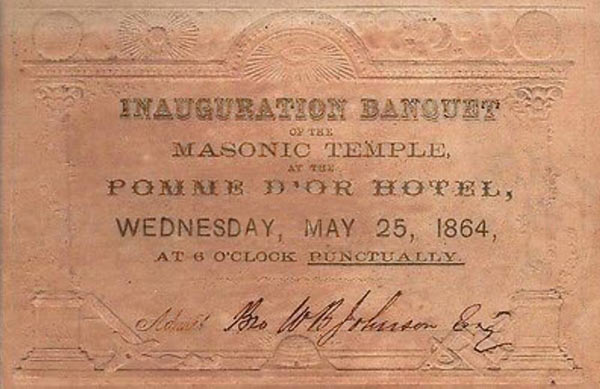 INAUGURATION BANQUET
OF THE
MASONIC TEMPLE,
AT THE
POMME D'OR HOTEL,
WEDNESDAY, MAY 25, 1864,
AT 6 O'CLOCK PUNCTUALLY.
Admit Bro W B Johnson Esq